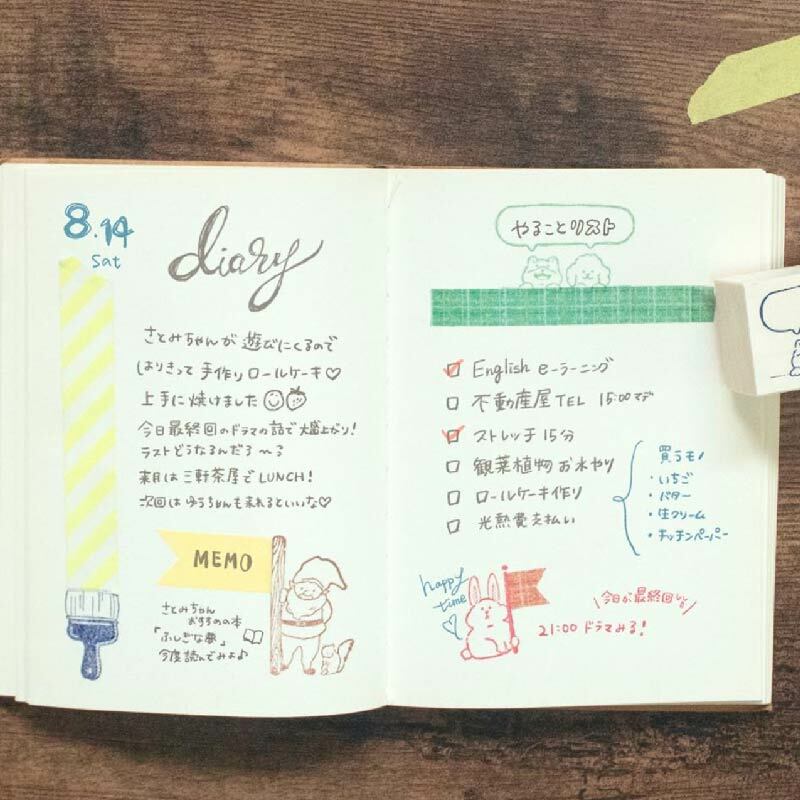 8.14
Sat
diary
さとみちゃんが遊びにくるので
はりきって手作りロールケーキ♡
上手に焼けました
今日最終回のドラマの話で大盛上がり!
ラストどうなるんだろ〜ろ
来月は三軒茶屋でLUNCH!
次回はゆうちゃんも来れるといいな♡
MEMO
さとみちゃん
おすすめの本
「ふしぎな夢」
今度読んでみよ♪
やることリスト
English e-ラーニング
不動産屋TEL 15:00マデ
ストレッチ15分
観葉植物お水やり
ロールケーキ作り
光熱費支払い
買うモノ
・いちご
・バター
・生クリーム
・キッチンペーパー
happy
time
♡
今日が最終回
21:00 ドラマみる!